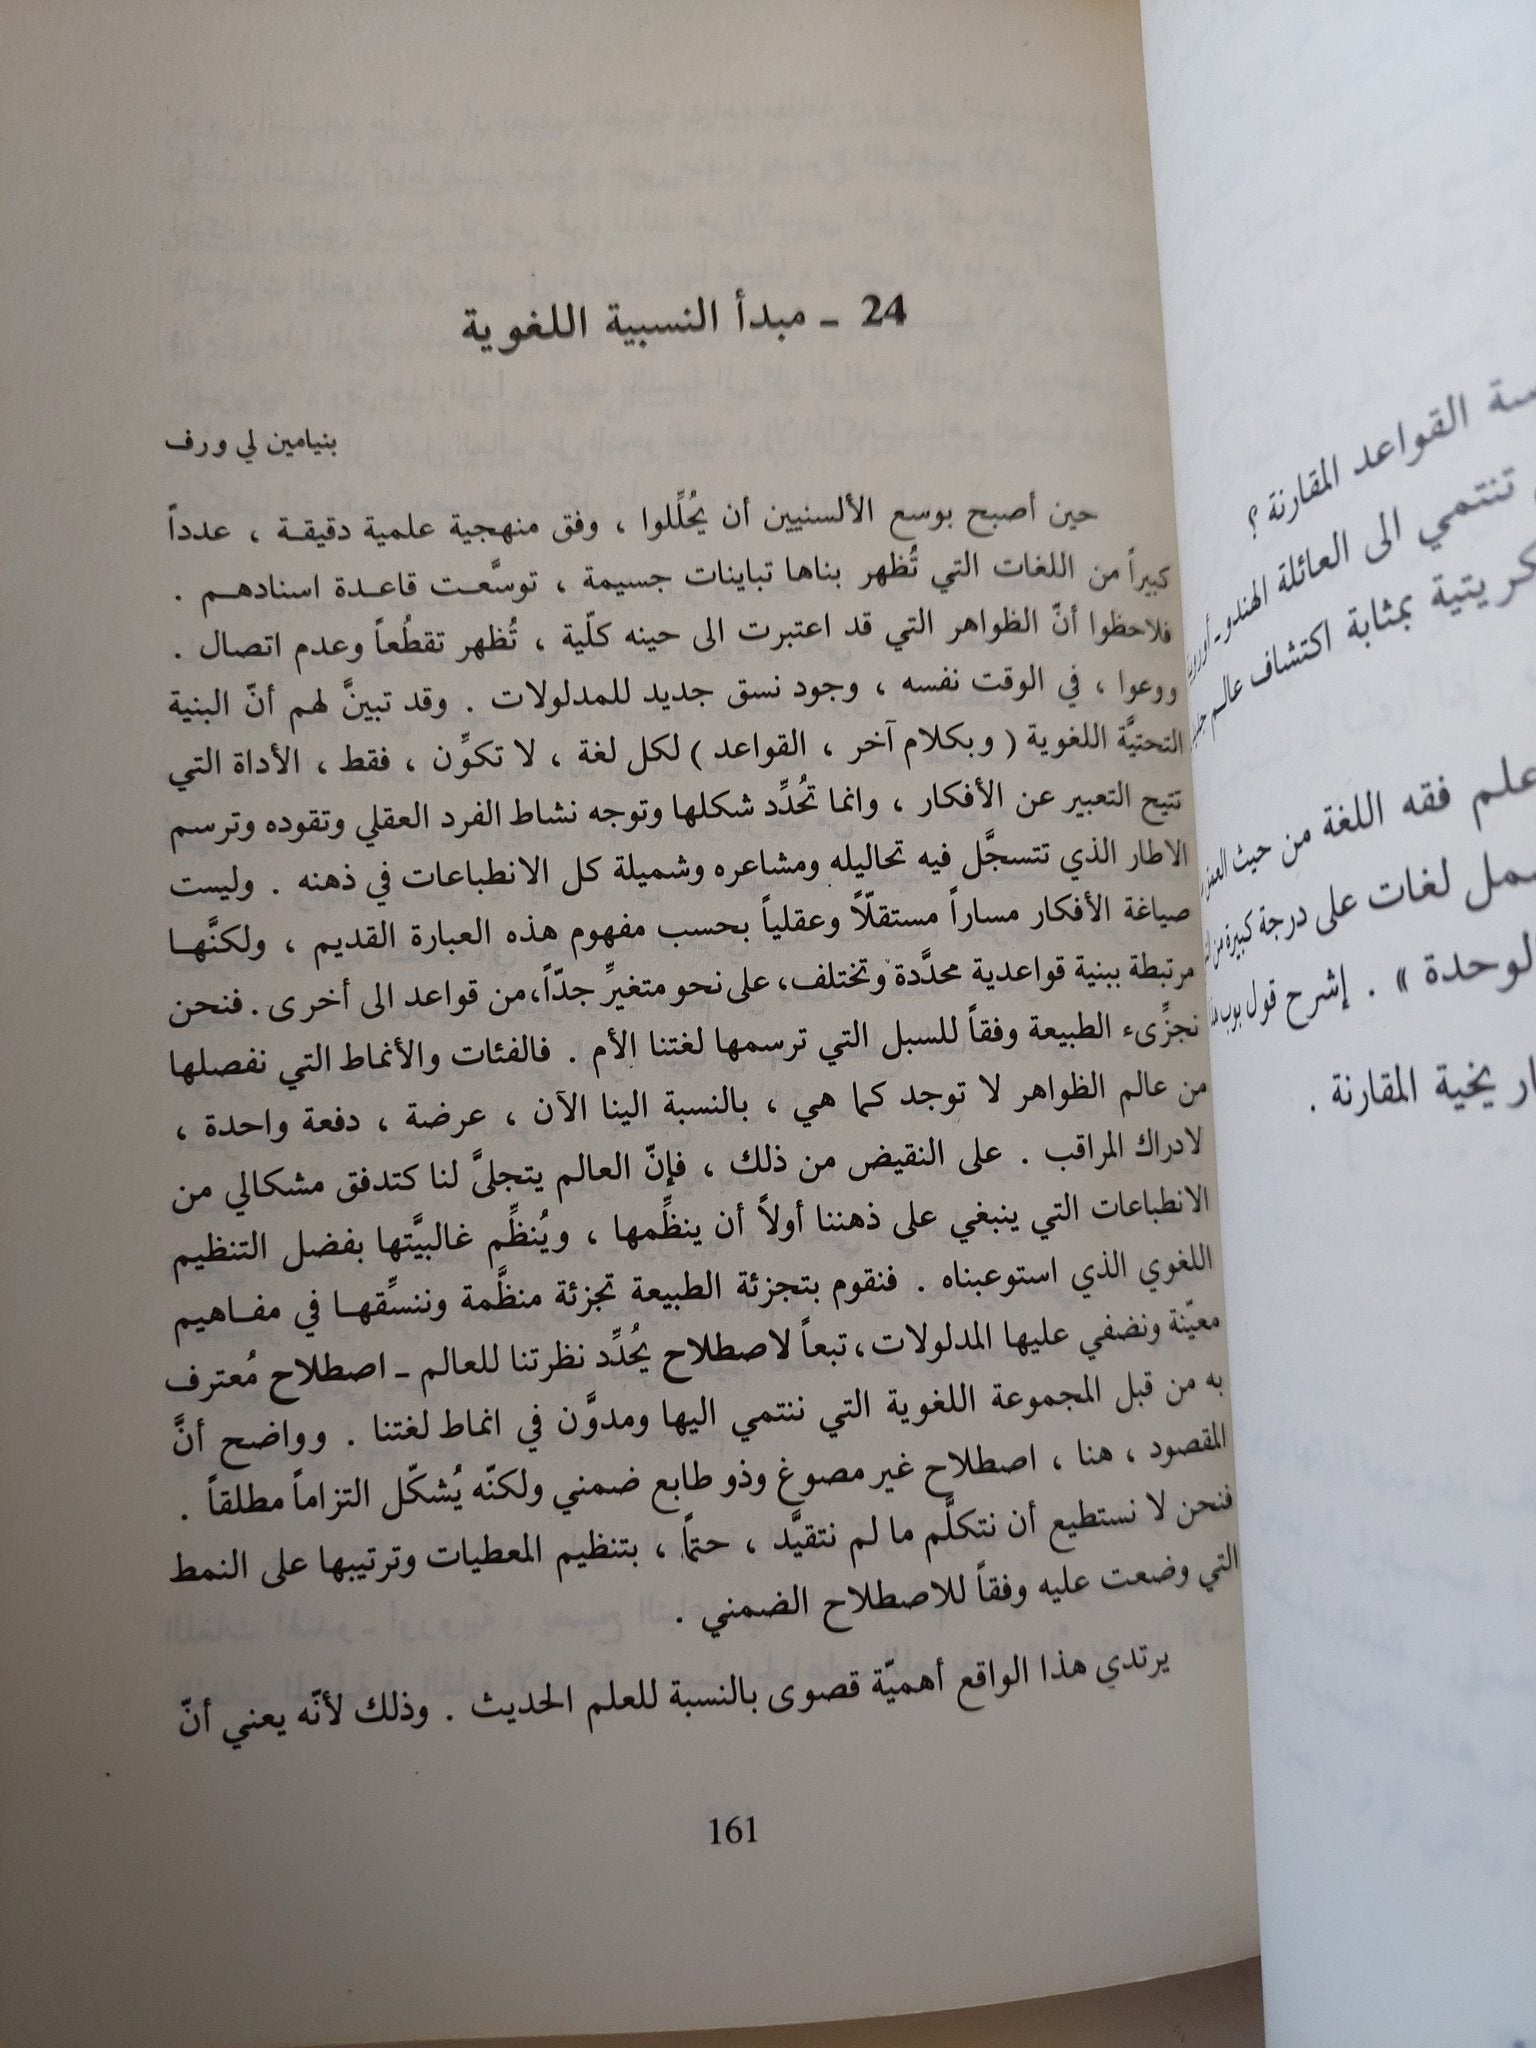 24 ـ مبدأ النسبية اللغوية
بنيامين لي ورف
حين أصبح بوسع الألسنيين أن يُحلِّلوا ، وفق منهجية علمية دقيقة ، عدداً
كبيراً من اللغات التي تُظهر بناها تباينات جسيمة ، توسَّعت قاعدة اسنادهم .
فلاحظوا أنّ الظواهر التي قد اعتبرت الى حينه كلّية ، تُظهر تقطُعاً وعدم اتصال .
ووعوا ، في الوقت نفسه ، وجود نسق جديد للمدلولات . وقد تبينَّ لهم أنّ البنية
التحتيَّة اللغوية ( وبكلام آخر ، القواعد ) لكل لغة ، لا تكوِّن ، فقط ، الأداة التي
تتيح التعبير عن الأفكار ، وانما تحُدِّد شكلها وتوجه نشاط الفرد العقلي وتقوده وترسم
الاطار الذي تتسجَّل فيه تحاليله ومشاعره وشميلة كل الانطباعات في ذهنه . وليست
صياغة الأفكار مساراً مستقلّاً وعقلياً بحسب مفهوم هذه العبارة القديم ، ولكنَّها
مرتبطة ببنية قواعدية محدَّدة وتختلف، على نحو متغيرِّ جدّاً،من قواعد الى أخرى . فنحن
نجزِّىء الطبيعة وفقاً للسبل التي ترسمها لغتنا الأم . فالفئات والأنماط التي نفصلها
من عالم الظواهر لا توجد كما هي ، بالنسبة الينا الآن ، عرضة ، دفعة واحدة ،
لادراك المراقب . على النقيض من ذلك ، فإنّ العالم يتجلىَّ لنا كتدفق مشكالي من
الانطباعات التي ينبغي على ذهننا أولاً أن ينظِّمها ، ويُنظِّم غالبيَّتها بفضل التنظيم
اللغوي الذي استوعبناه . فنقوم بتجزئة الطبيعة تجزئة منظَّمة وننسِّقها في مفاهيم
معيّنة ونضفي عليها المدلولات، تبعاً لاصطلاح يحُدِّد نظرتنا للعالم ـ اصطلاح مُعترف
به من قبل المجموعة اللغوية التي ننتمي اليها ومدوَّن في انماط لغتنا . وواضح أنَّ
المقصود ، هنا ، اصطلاح غير مصوغ وذو طابع ضمني ولكنّه يُشكّل التزاماً مطلقاً .
فنحن لا نستطيع أن نتكلَّم ما لم نتقيَّد ، حتماً ، بتنظيم المعطيات وترتيبها على النمط
التي وضعت عليه وفقاً للاصطلاح الضمني .
يرتدي هذا الواقع أهميّة قصوى بالنسبة للعلم الحديث . وذلك لأنّه يعني أنّ
161
القواعد المقارنة ؟
تنتمي الى العائلة الهندو ـ
بمثابة اكتشاف عالم
علم فقه اللغة من حيث
لغات على درجة كبيرة من
لوحدة » . إشرح قول بوب
المقارنة .